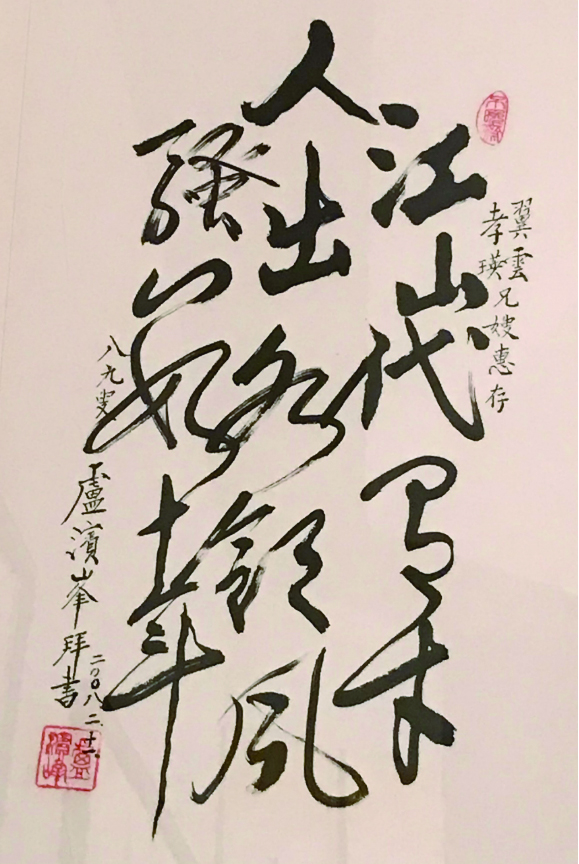 翼雲
孝瑛兄嫂惠存
江山代有才
人出各領風
騷
八九叟
盧濱峯拜書
二〇〇八.二.十一
盧濱峰